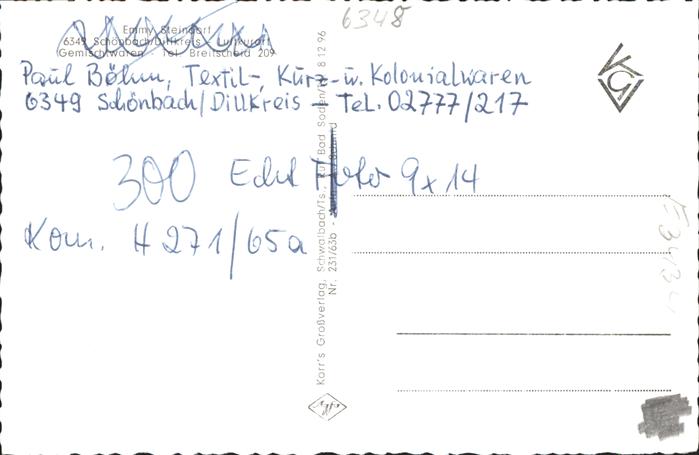 6348
Emmy Steindorf
6349 Schönbach/Dillkreis Luftkurort
Gemischtwaren Tel. Breitscheid 209
Paul Böhm, Textil-, Kurz- u. Kolonialwaren
6349 Schönbach/Dillkreis - Tel. 02777/217
300 Echt Foto 9x14
Kom. H 271/65a
Karr's Großverlag, Schwalbach/Ts., Ruf: Bad Soden/Ts. 8 12 96
Nr. 231/63b -
KGV
Agfa